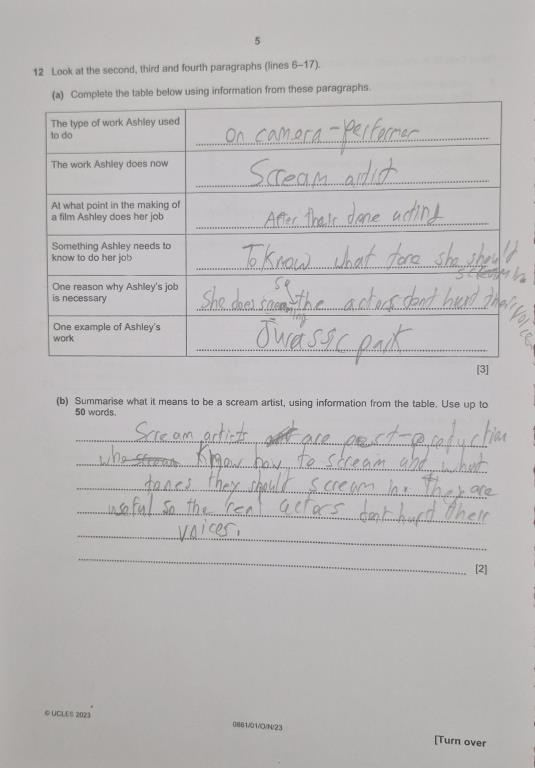 5
12 Look at the second, third and fourth paragraphs (lines 6–17).
(a) Complete the table below using information from these paragraphs.
The type of work Ashley used to do
On camera-performer
The work Ashley does now
Scream artist
At what point in the making of a film Ashley does her job
After their done acting
Something Ashley needs to know to do her job
To know what tone she should scream in
One reason why Ashley's job is necessary
She does screaming so the actors dont hurt their voice
One example of Ashley's work
Jurassic park
[3]
(b) Summarise what it means to be a scream artist, using information from the table. Use up to
50 words.
Scream artists are post-production
who know how to scream and what
tones they should scream in. They are
useful so the real actors dont hurt their
voices.
[2]
© UCLES 2023
0861/01/O/N/23
[Turn over